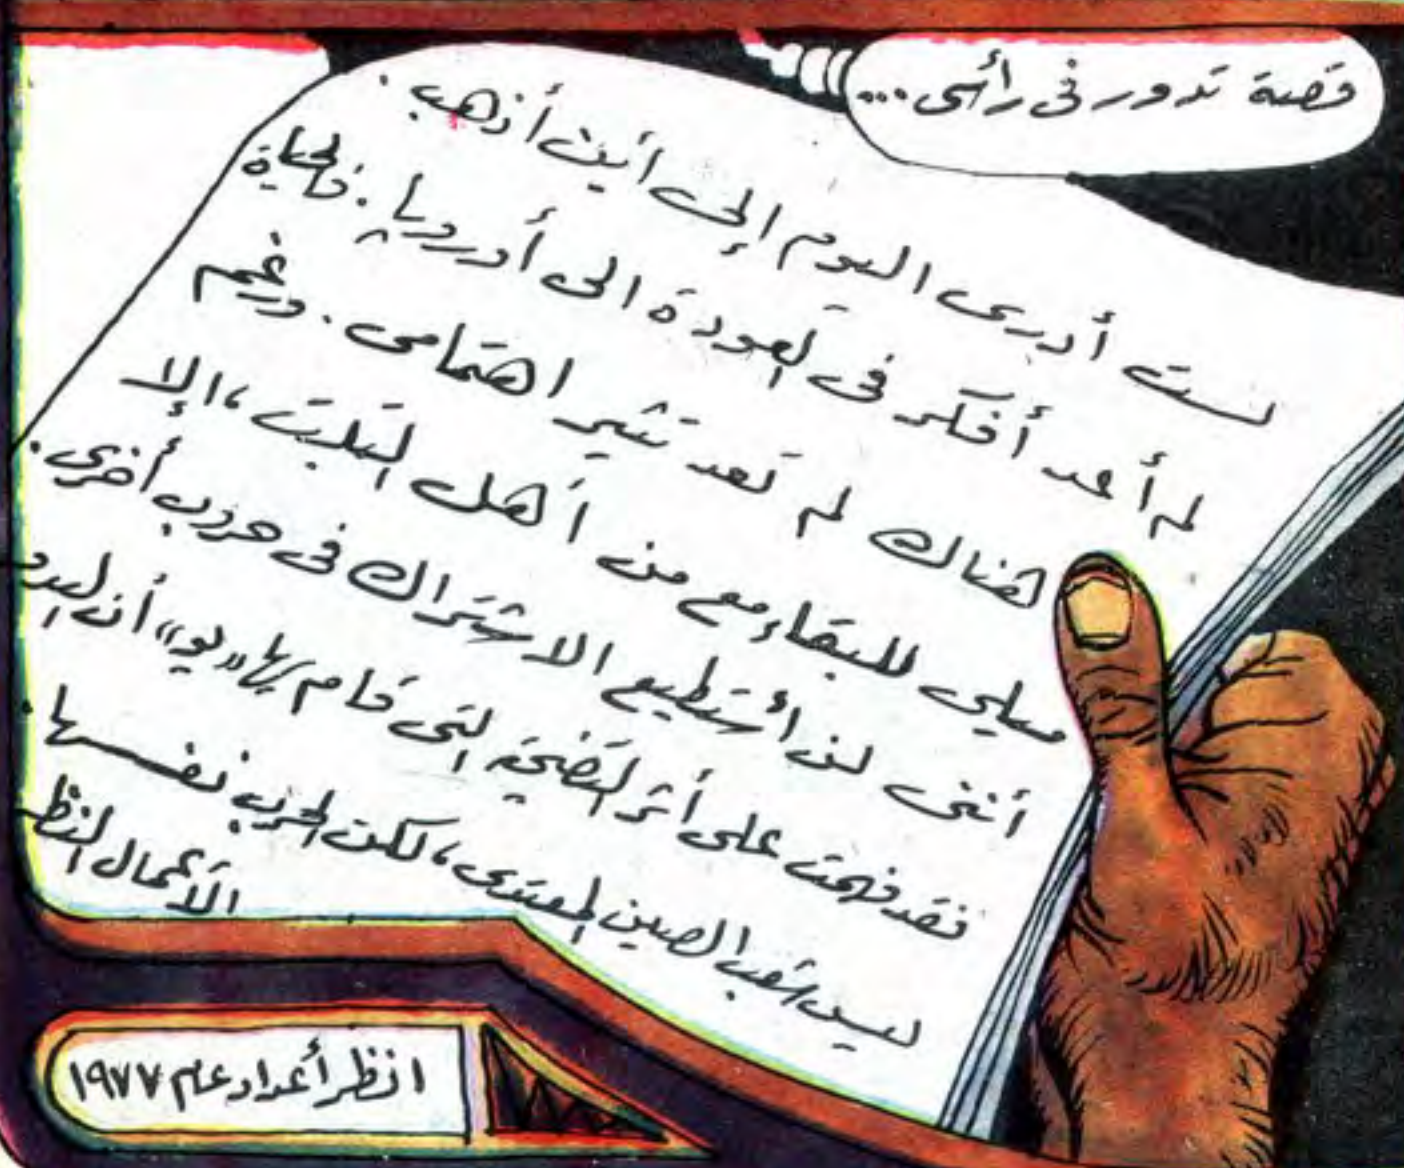 قصة تدور فى رأسى...
لست أدرى اليوم إلى أين أذهب.
لم أعد أفكر فى العودة الى أوروبا. فالحياة
هناك لم تعد تثير اهتمامى. ورغم
ميلى للبقاء مع من أهل التبت، إلا
أننى لن أستطيع الاشتراك فى حروب أخرى.
فقد فهمت على أثر التضحية التى قام بها «يو» أن العدو
ليس شعب الصين المعتدى، لكن الحرب نفسها.
الأعمال
انظر أعداد عام ١٩٧٧